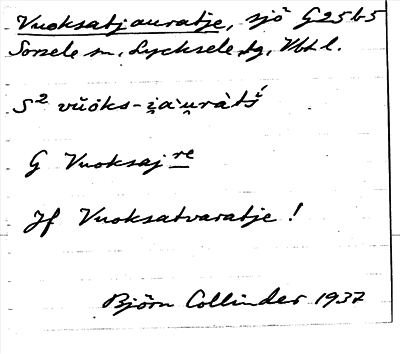 Vuoksatjauratje, sjö G25b5
Sorsele sn, Lycksele lg, Vbt l.
S² vŭȯks-i̯a'u̯ràtś
G Vuoksajre
Jf Vuoksatvaratje !
Björn Collinder 1937